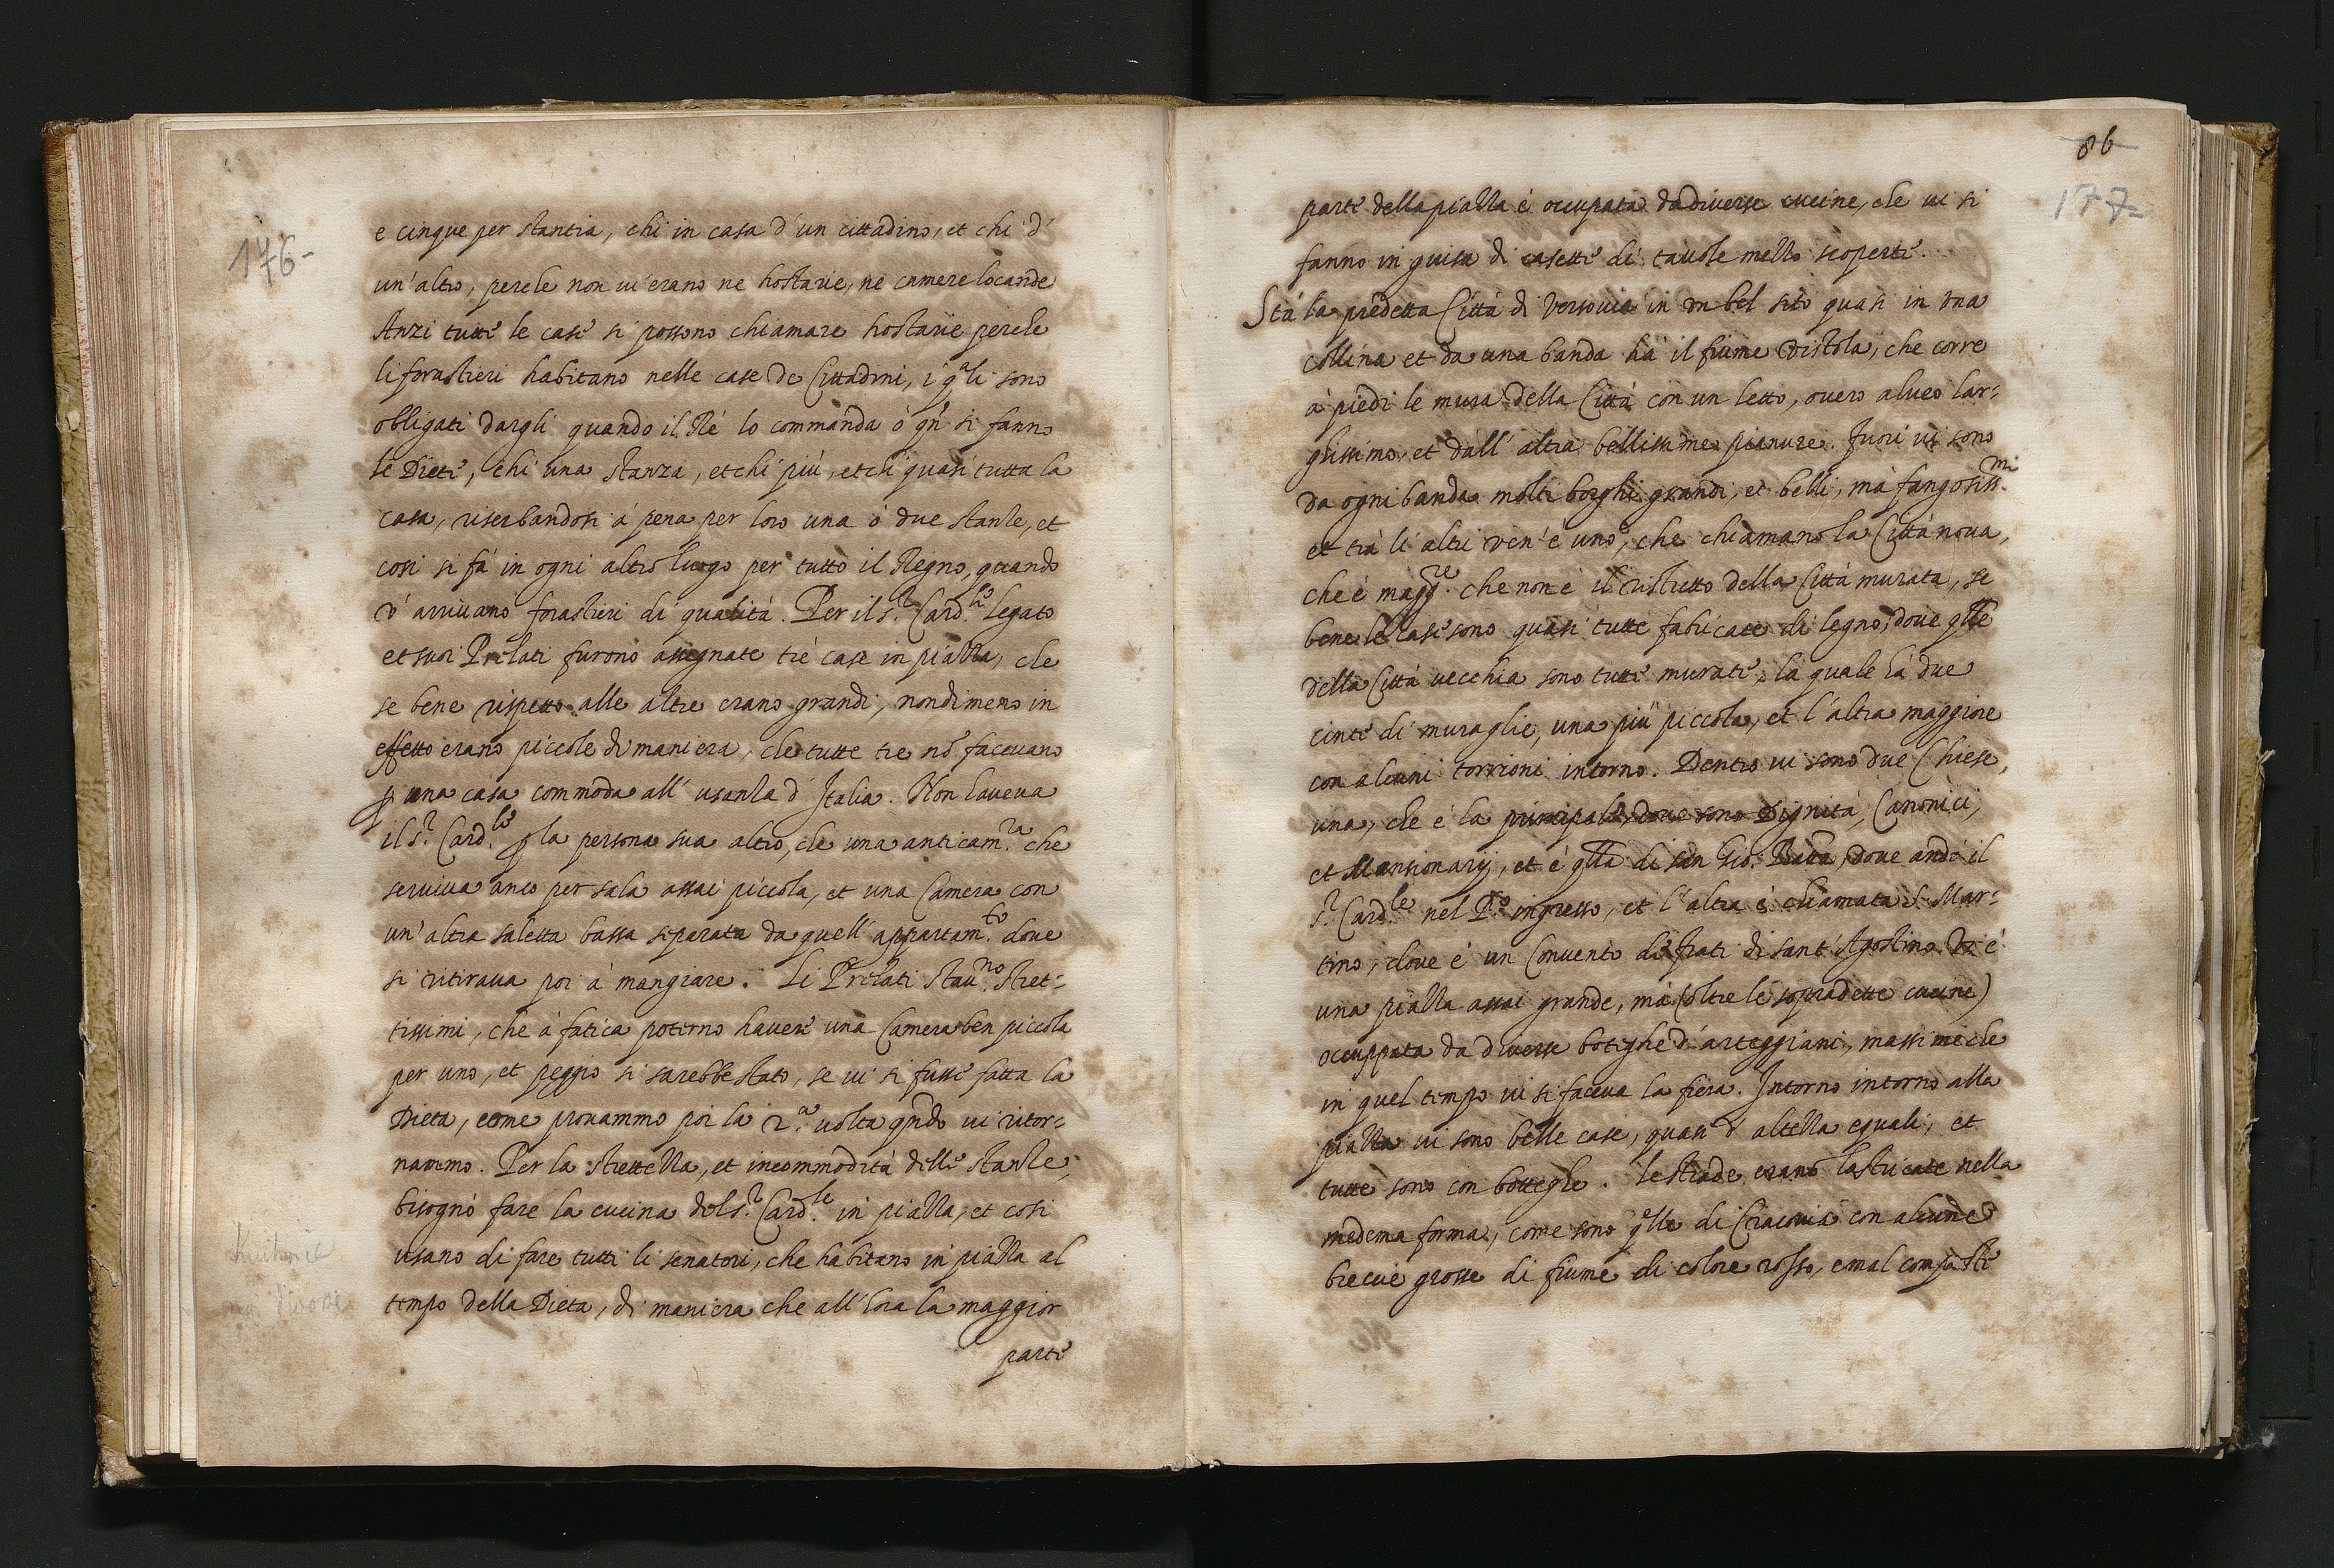 176-
e cinque per stantia, chi in casa d'un cittadino, et chi d'
un'altro, perche non vi erano ne hostarie, ne camere locande
Anzi tutte le case si possono chiamare hostarie perche
li forastieri habitano nelle case de Cittadini, i qᵃli sono
obligati dargli quando il Rè lo commanda ò qñ si fanno
le Diete, chi una stanza, et chi più, et chi quasi tutta la
casa, riserbandosi à pena per loro una ò due stanze, et
cosi si fà in ogni altro luogo per tutto il Regno, quando
v'arrivano forastieri di qualità. Per il s.ʳ Card.ˡᵉ legato
et suoi Prelati furono assegnate trè case in piazza, che
se bene rispetto alle altre erano grandi, nondimeno in
effetto erano piccole di maniera, che tutte tre nõ facevano
ꝑ una casa commoda all'usanza d'Italia. Non haveva
il s.ʳ Card.ˡᵉ ꝑ la persona sua altro, che una anticam.ʳᵃ che
serviva anco per sala assai piccola, et una Camera con
un'altra saletta bassa separata da quell'appartam.ᵗᵒ dove
si ritirava poi à mangiare. Li Prelati stav.ⁿᵒ stret=
tissimi, che à fatica poterno havere una Camera ben piccola
per uno, et peggio si sarebbe stato, se vi si fusse fatta la
Dieta, come provammo poi la 2.ᵃ volta qñdo vi ritor=
nammo. Per la strettezza, et incommodità delle stanze,
bisognò fare la cucina del s.ʳ Card.ˡᵉ in piazza, et cosi
usano di fare tutti li senatori, che habitano in piazza al
tempo della Dieta, di maniera che all'hora la maggior
parte
86
177-
parte della piazza è occupata da diverse cucine, che vi si
fanno in guisa di casette di tavole mezzo scoperte.
Stà la predetta Città di Versovia in un bel sito quasi in una
collina et da una banda hà il fiume Vistola, che corre
à piedi le mura della Città con un letto, overo alveo lar=
ghissimo, et dall'altra bellissime pianure. Fuori vi sono
da ogni banda molti borghi grandi, et belli, mà fangosiss.ᵐⁱ
et trà li altri ven'è uno, che chiamano la Città nova,
che è magg.ʳᵉ che non è il ristretto della Città murata, se
bene le case sono quasi tutte fabricate di legno, dove qlle
della Città vecchia sono tutte murate, la quale hà due
cinte di muraglie, una più piccola, et l'altra maggiore
con alcuni torrioni intorno. Dentro vi sono due Chiese,
una, che è la principale, dove sono Dignità, Canonici,
et Mansionarij, et è qlla di san Gio: Batta, dove andò il
s.ʳ Card.ˡᵉ nel P.º ingresso, et l'altra è chiamata S. Mar=
tino, dove è un Convento di frati di sant'Agostino. Vi è
una piazza assai grande, mà (oltre le sopradette cucine)
occuppata da diverse botighe d'arteggiani, massime che
in quel tempo vi si faceva la fiera. Intorno intorno alla
piazza vi sono belle case, quasi d'altezza eguali, et
tutte sono con botteghe. le strade erano lastricate nella
medema forma, come sono qlle di Cracovia con alcune
breccie grosse di fiume di colore rosso, e mal composte